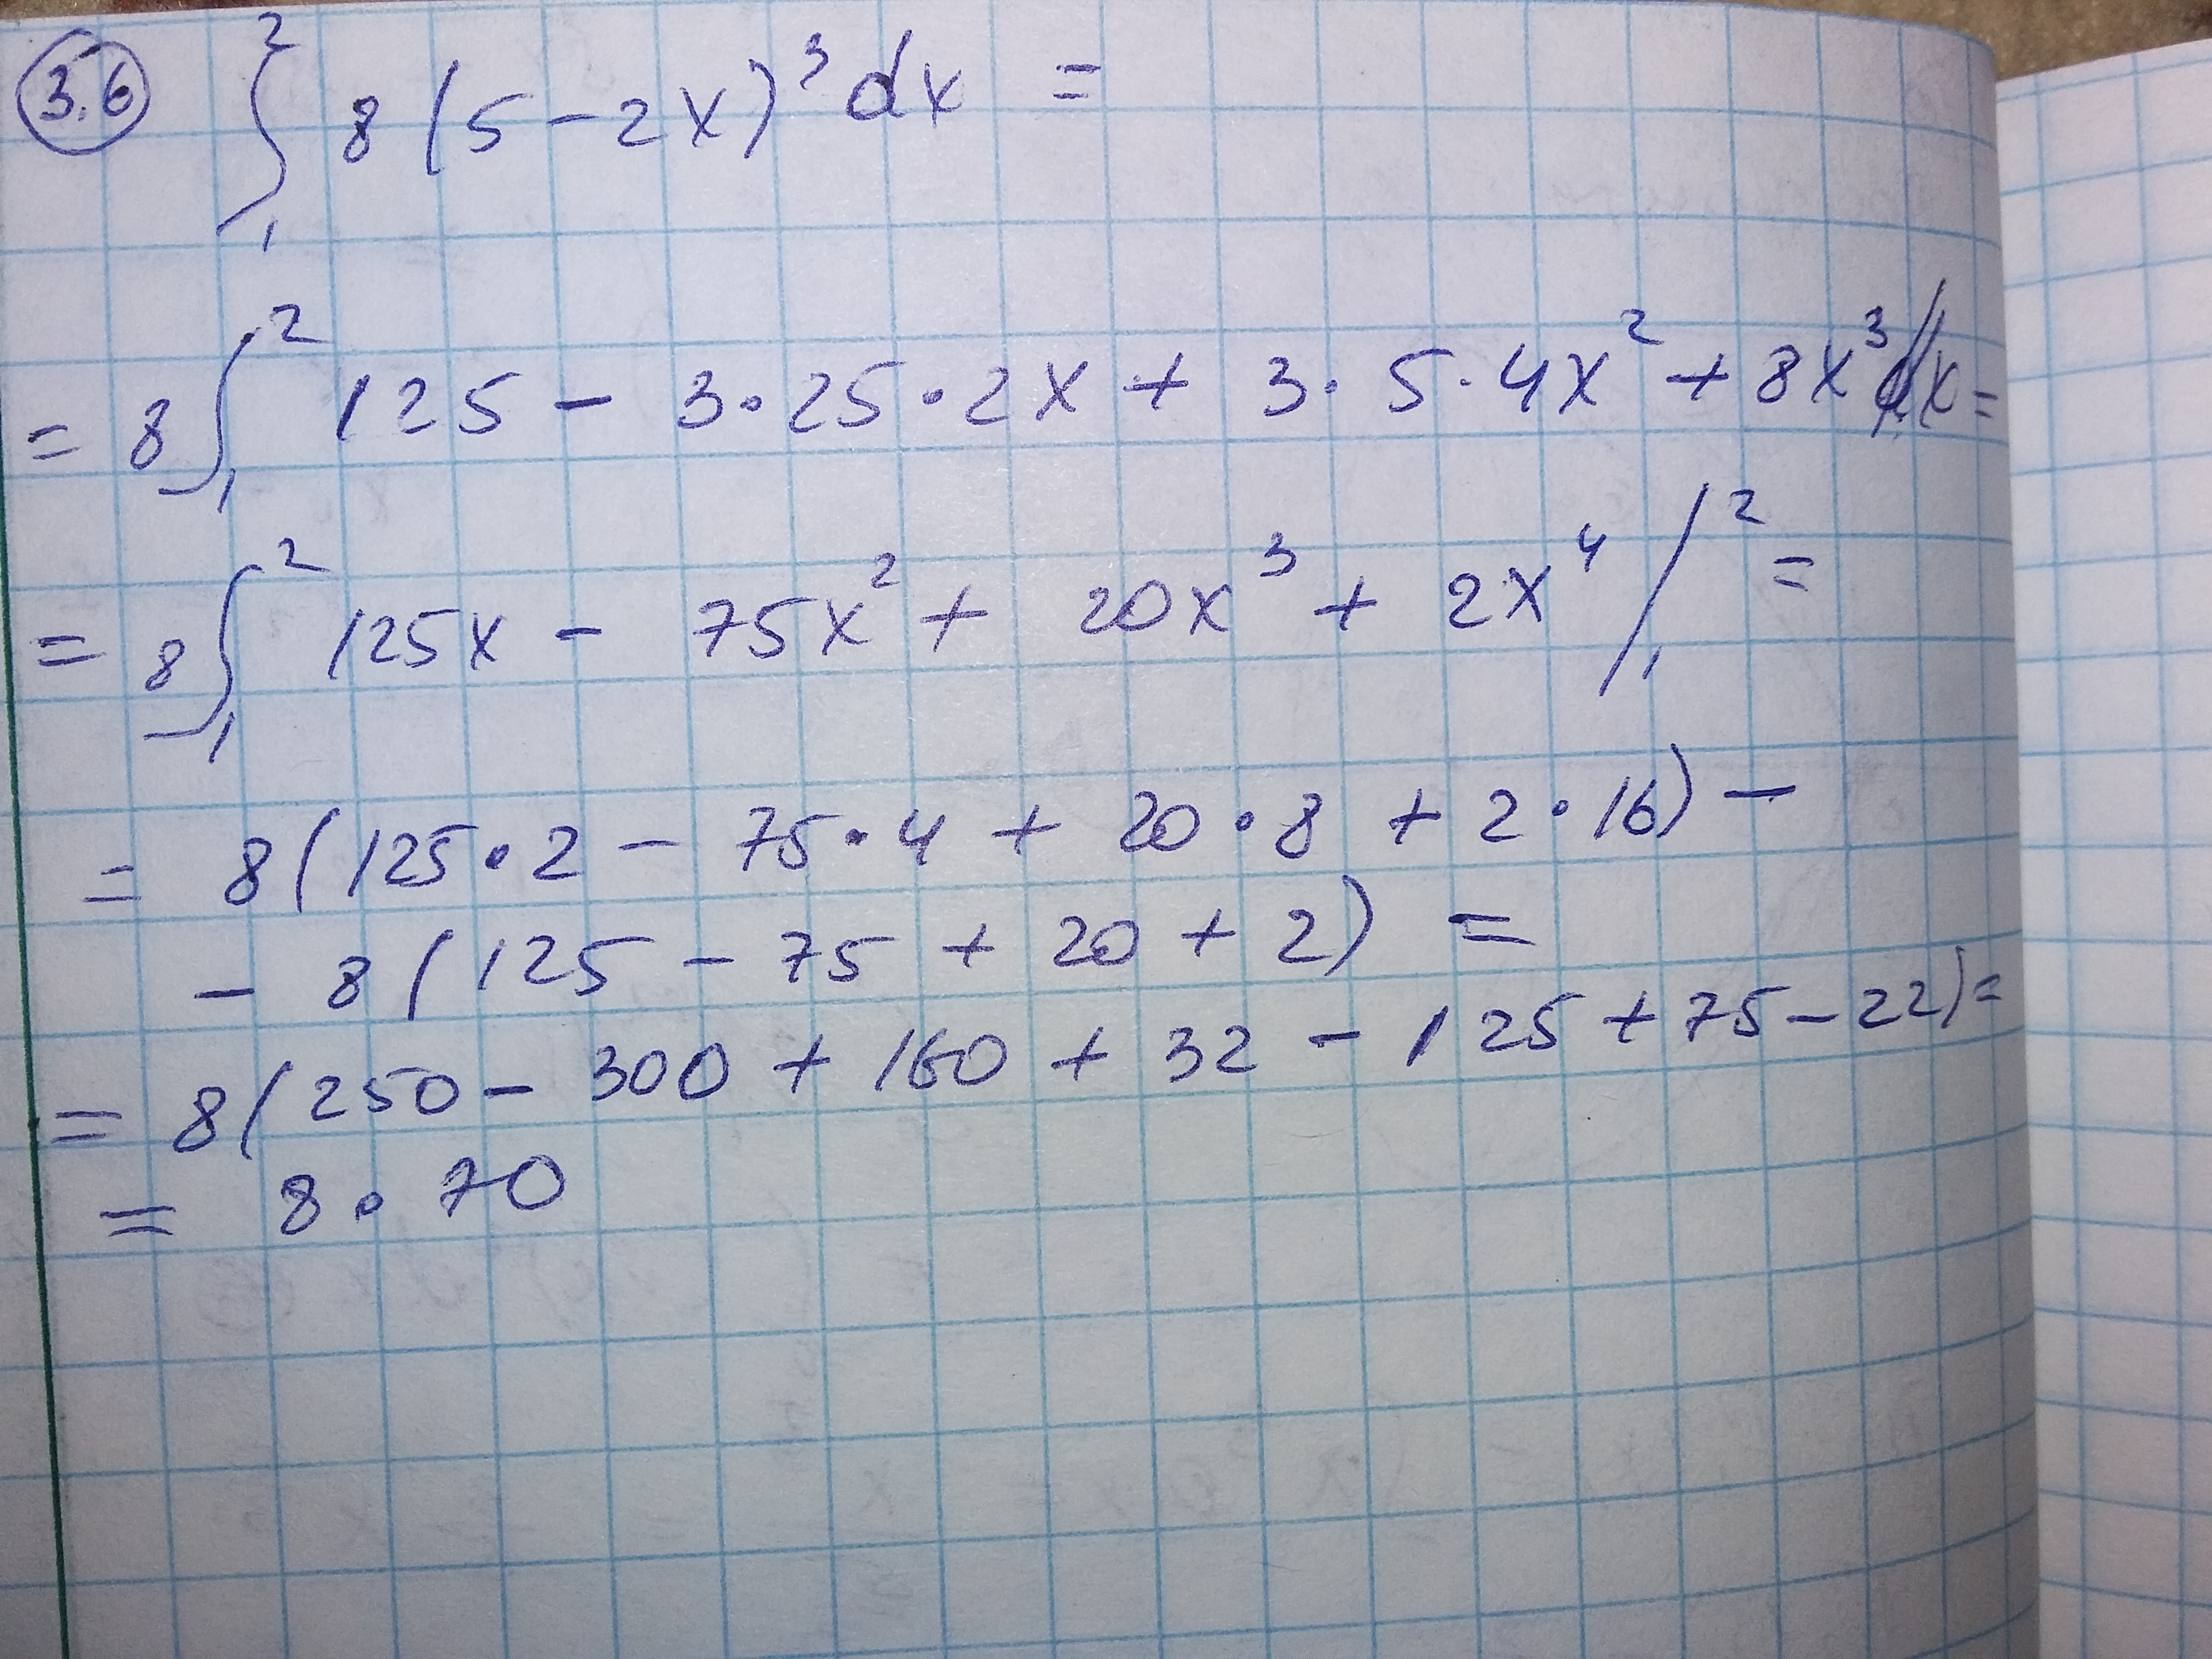 3.6 ∫₁² 8(5-2x)³dx =
= 8∫₁² 125 - 3·25·2x + 3·5·4x² + 8x³dx =
= 8∫₁² 125x - 75x² + 20x³ + 2x⁴ /₁² =
= 8(125·2 - 75·4 + 20·8 + 2·16) -
- 8(125 - 75 + 20 + 2) =
= 8(250 - 300 + 160 + 32 - 125 + 75 - 22) =
= 8·70